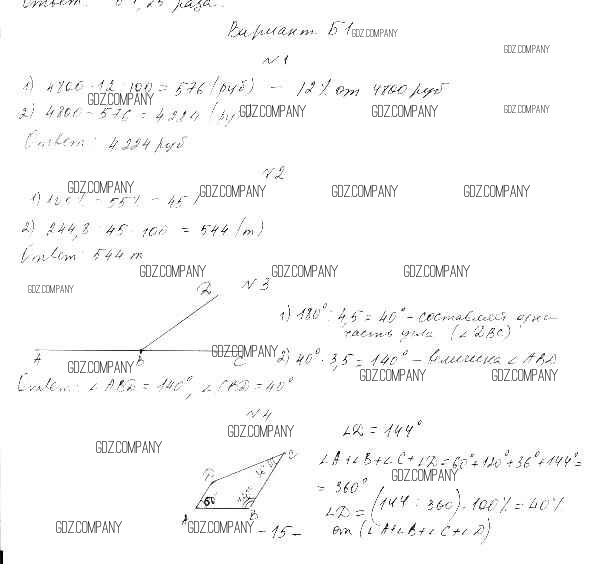 Ответ: в 1,25 раза.
Вариант Б1 GDZ.COMPANY
GDZ.COMPANY
№1
1) 4800 · 12 : 100 = 576 (руб) – 12% от 4800 руб
GDZ.COMPANY
2) 4800 – 576 = 4224 (руб) GDZ.COMPANY GDZ.COMPANY GDZ.COMPANY
Ответ: 4224 руб
№2
GDZ.COMPANY GDZ.COMPANY GDZ.COMPANY GDZ.COMPANY
1) 100% – 55% = 45%
2) 244,8 : 45 · 100 = 544 (т)
Ответ: 544 т
GDZ.COMPANY GDZ.COMPANY GDZ.COMPANY
GDZ.COMPANY D №3
1) 180° : 4,5 = 40° – составляет одна
часть угла (∠DBC)
A B C GDZ.COMPANY
GDZ.COMPANY 2) 40° · 3,5 = 140° – величина ∠ABD
GDZ.COMPANY GDZ.COMPANY
Ответ: ∠ABD = 140°, ∠CBD = 40°
№4
GDZ.COMPANY ∠D = 144°
GDZ.COMPANY
C
∠A + ∠B + ∠C + ∠D = 60° + 120° + 36° + 144° =
GDZ.COMPANY
D
= 360°
60°
∠D = (144 : 360) · 100% = 40%
A B
GDZ.COMPANY GDZ.COMPANY – 15 – от (∠A + ∠B + ∠C + ∠D)